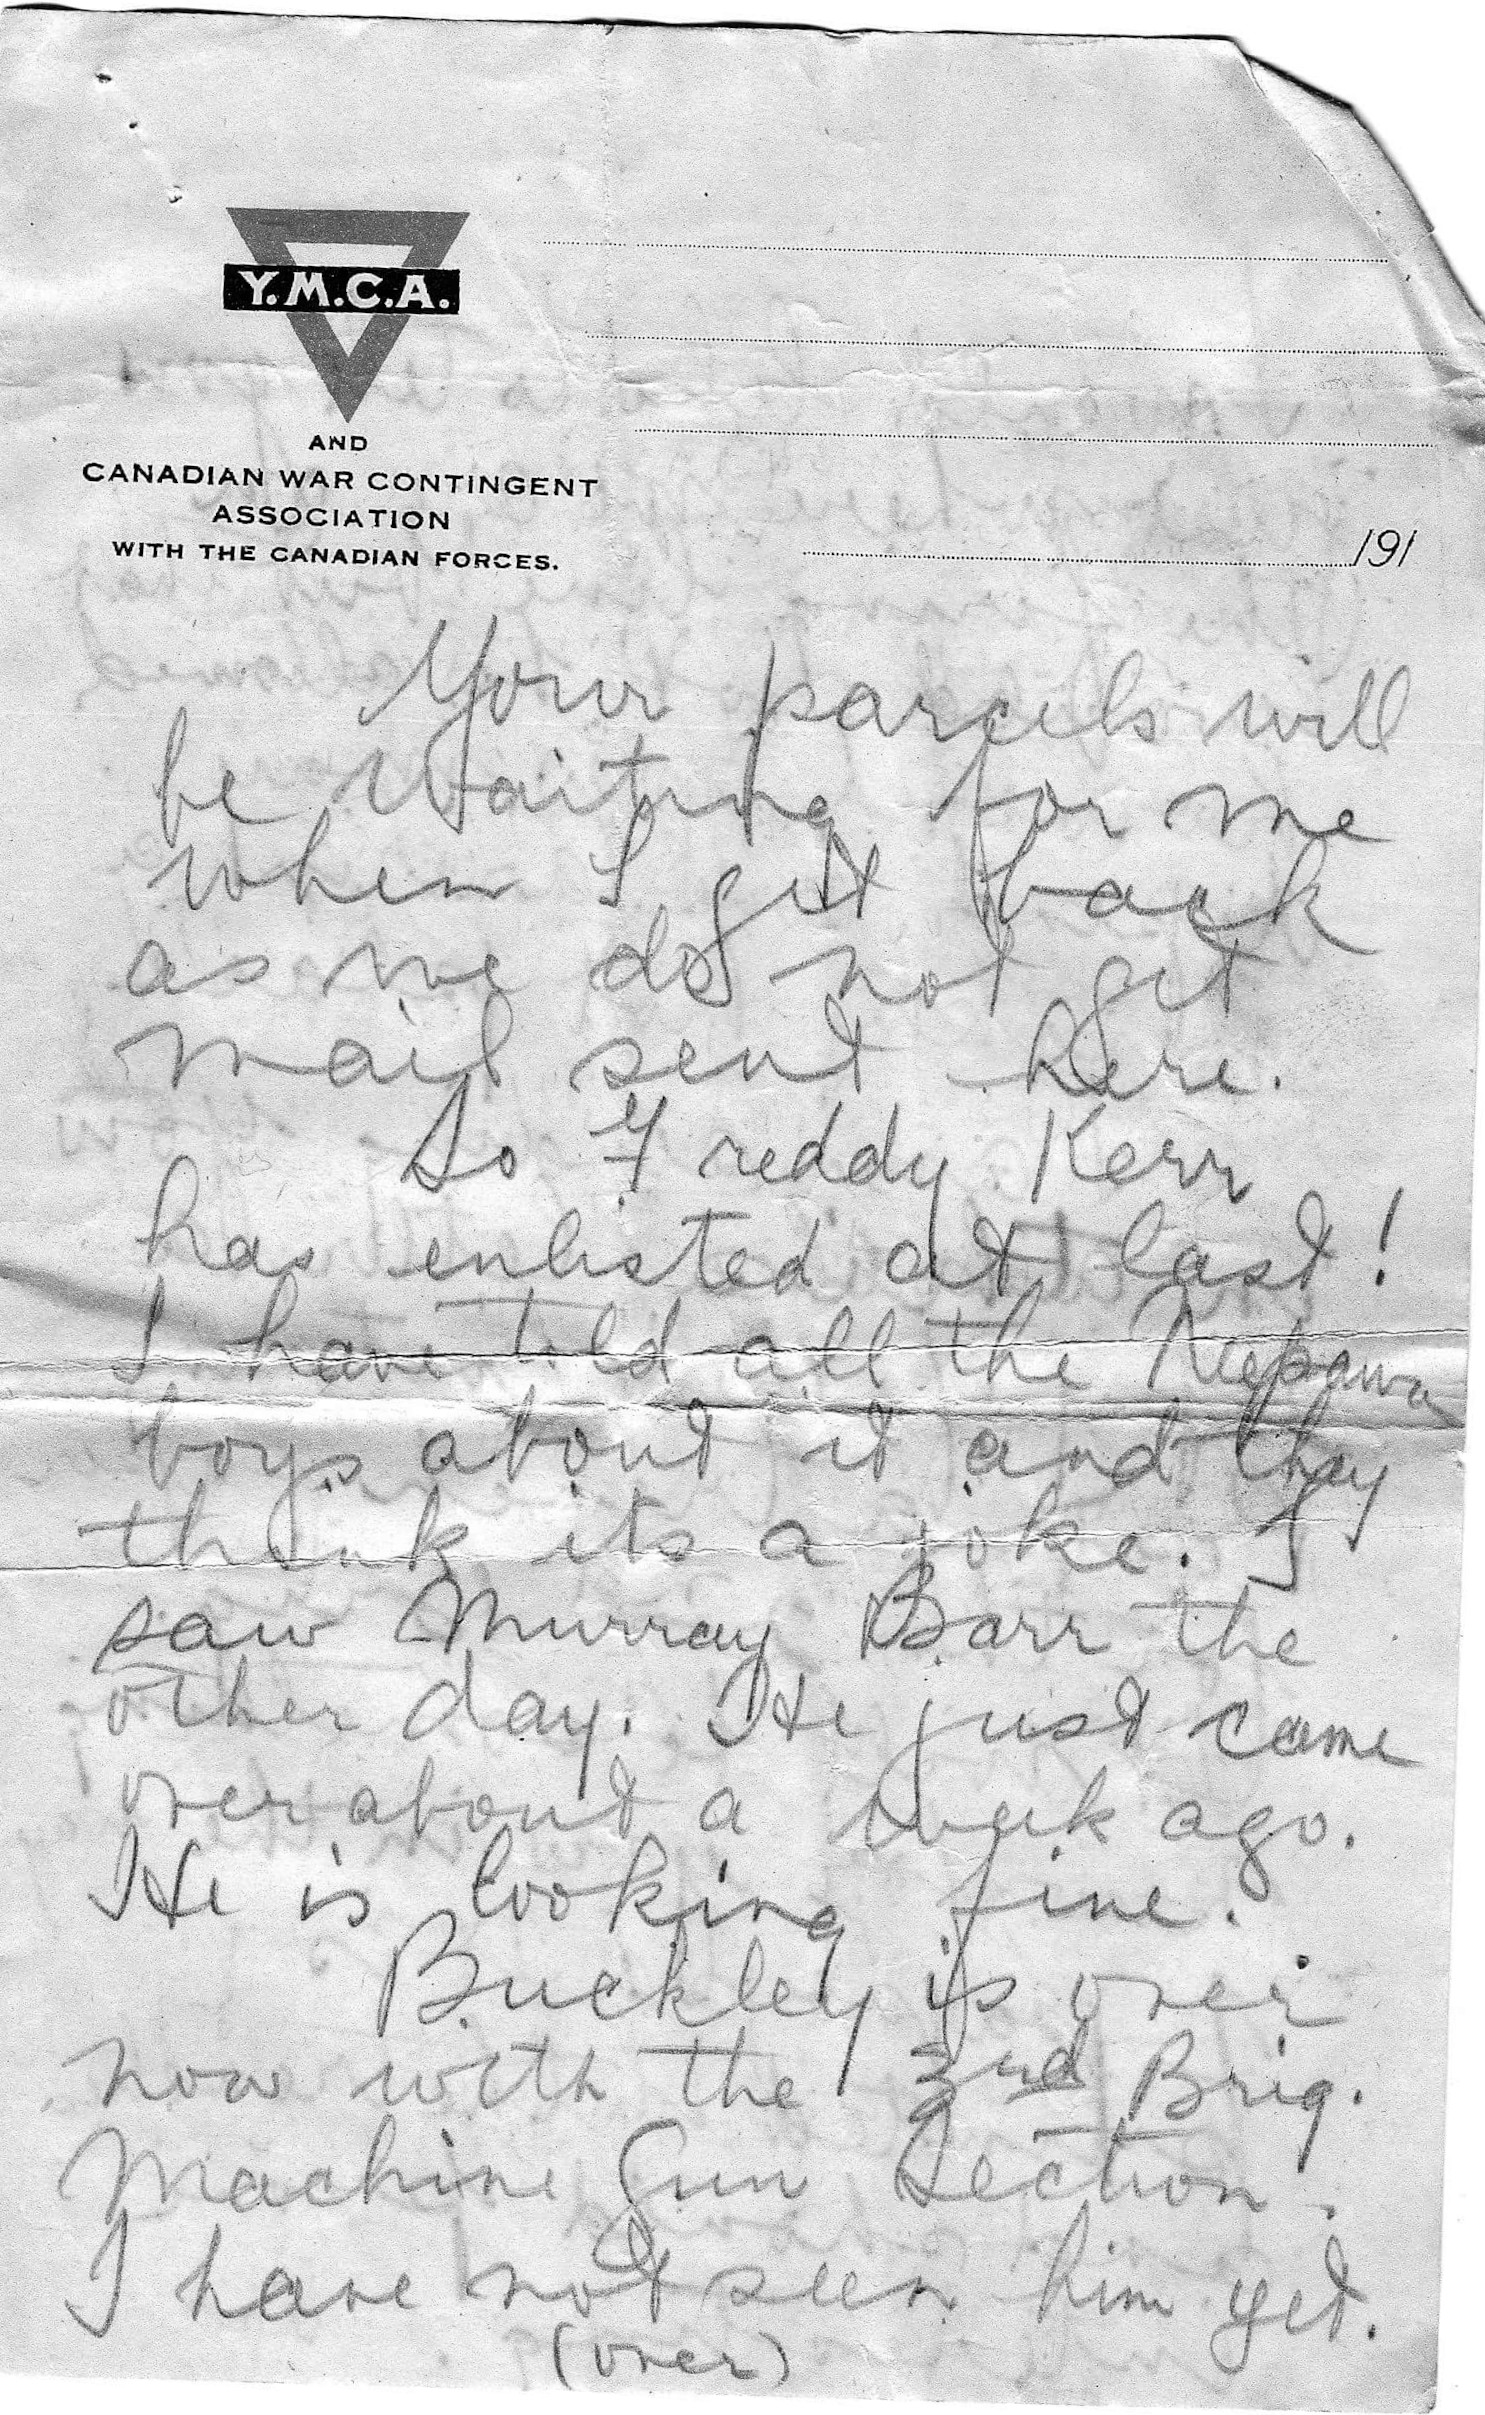 Y.M.C.A.
AND
CANADIAN WAR CONTINGENT
ASSOCIATION
WITH THE CANADIAN FORCES.
191
Your parcels will
be waiting for me
when I get back
as we do not get
mail sent here.
So Freddy Kerr
has enlisted at last!
I have told all the Neepawa
boys about it and they
think its a joke. I
saw Murray Barr the
other day. He just came
over about a week ago.
He is looking fine.
Buckley is over
now with the 2nd Brig.
Machine Gun Section.
I have not seen him yet.
(over)